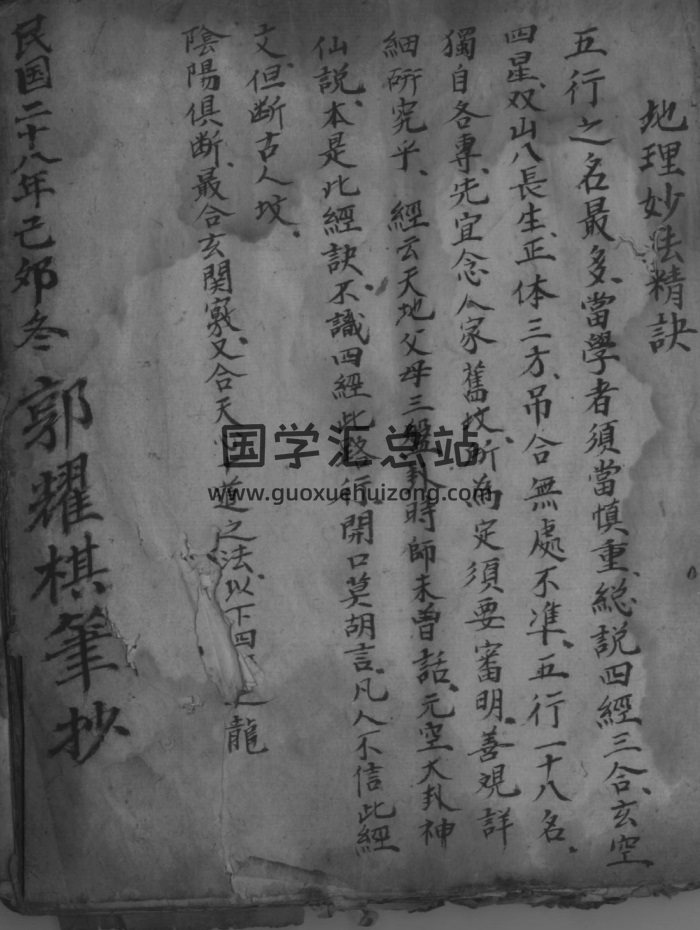 地理妙法精訣
五行之名最多、當學者須當慎重、総説四經三合、玄空
四星、双山八長生、正体三方、吊合無處不準、五行一十八名。
獨自各專、先宜念人家舊坟、所為定須要審明、善观詳
細研究乎、經云天地父母三盤卦、時師未曾話、元空大卦神
仙説、本是此經訣、不識四經此路行、開口莫胡言、凡人不信此經
文、但断古人坟。
陰陽俱断、最合玄関竅、又合天道之法、以下四龍
民国二十八年己郊冬 郭耀棋筆抄
国学汇总站
www.guoxuehuizong.com